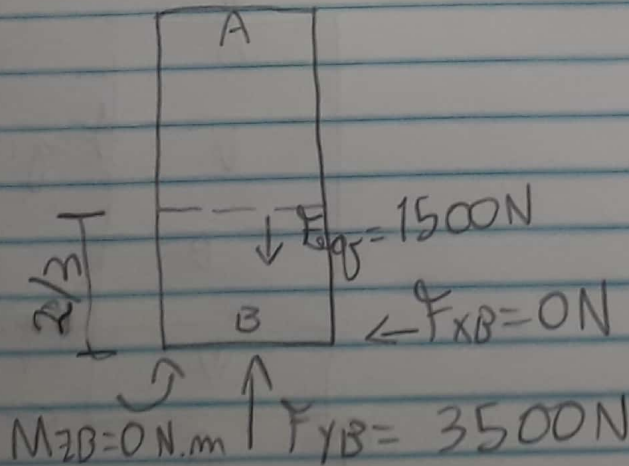 A
Feq = 1500N
2m
B
FXB = 0N
MZB = 0 N.m
FYB = 3500N